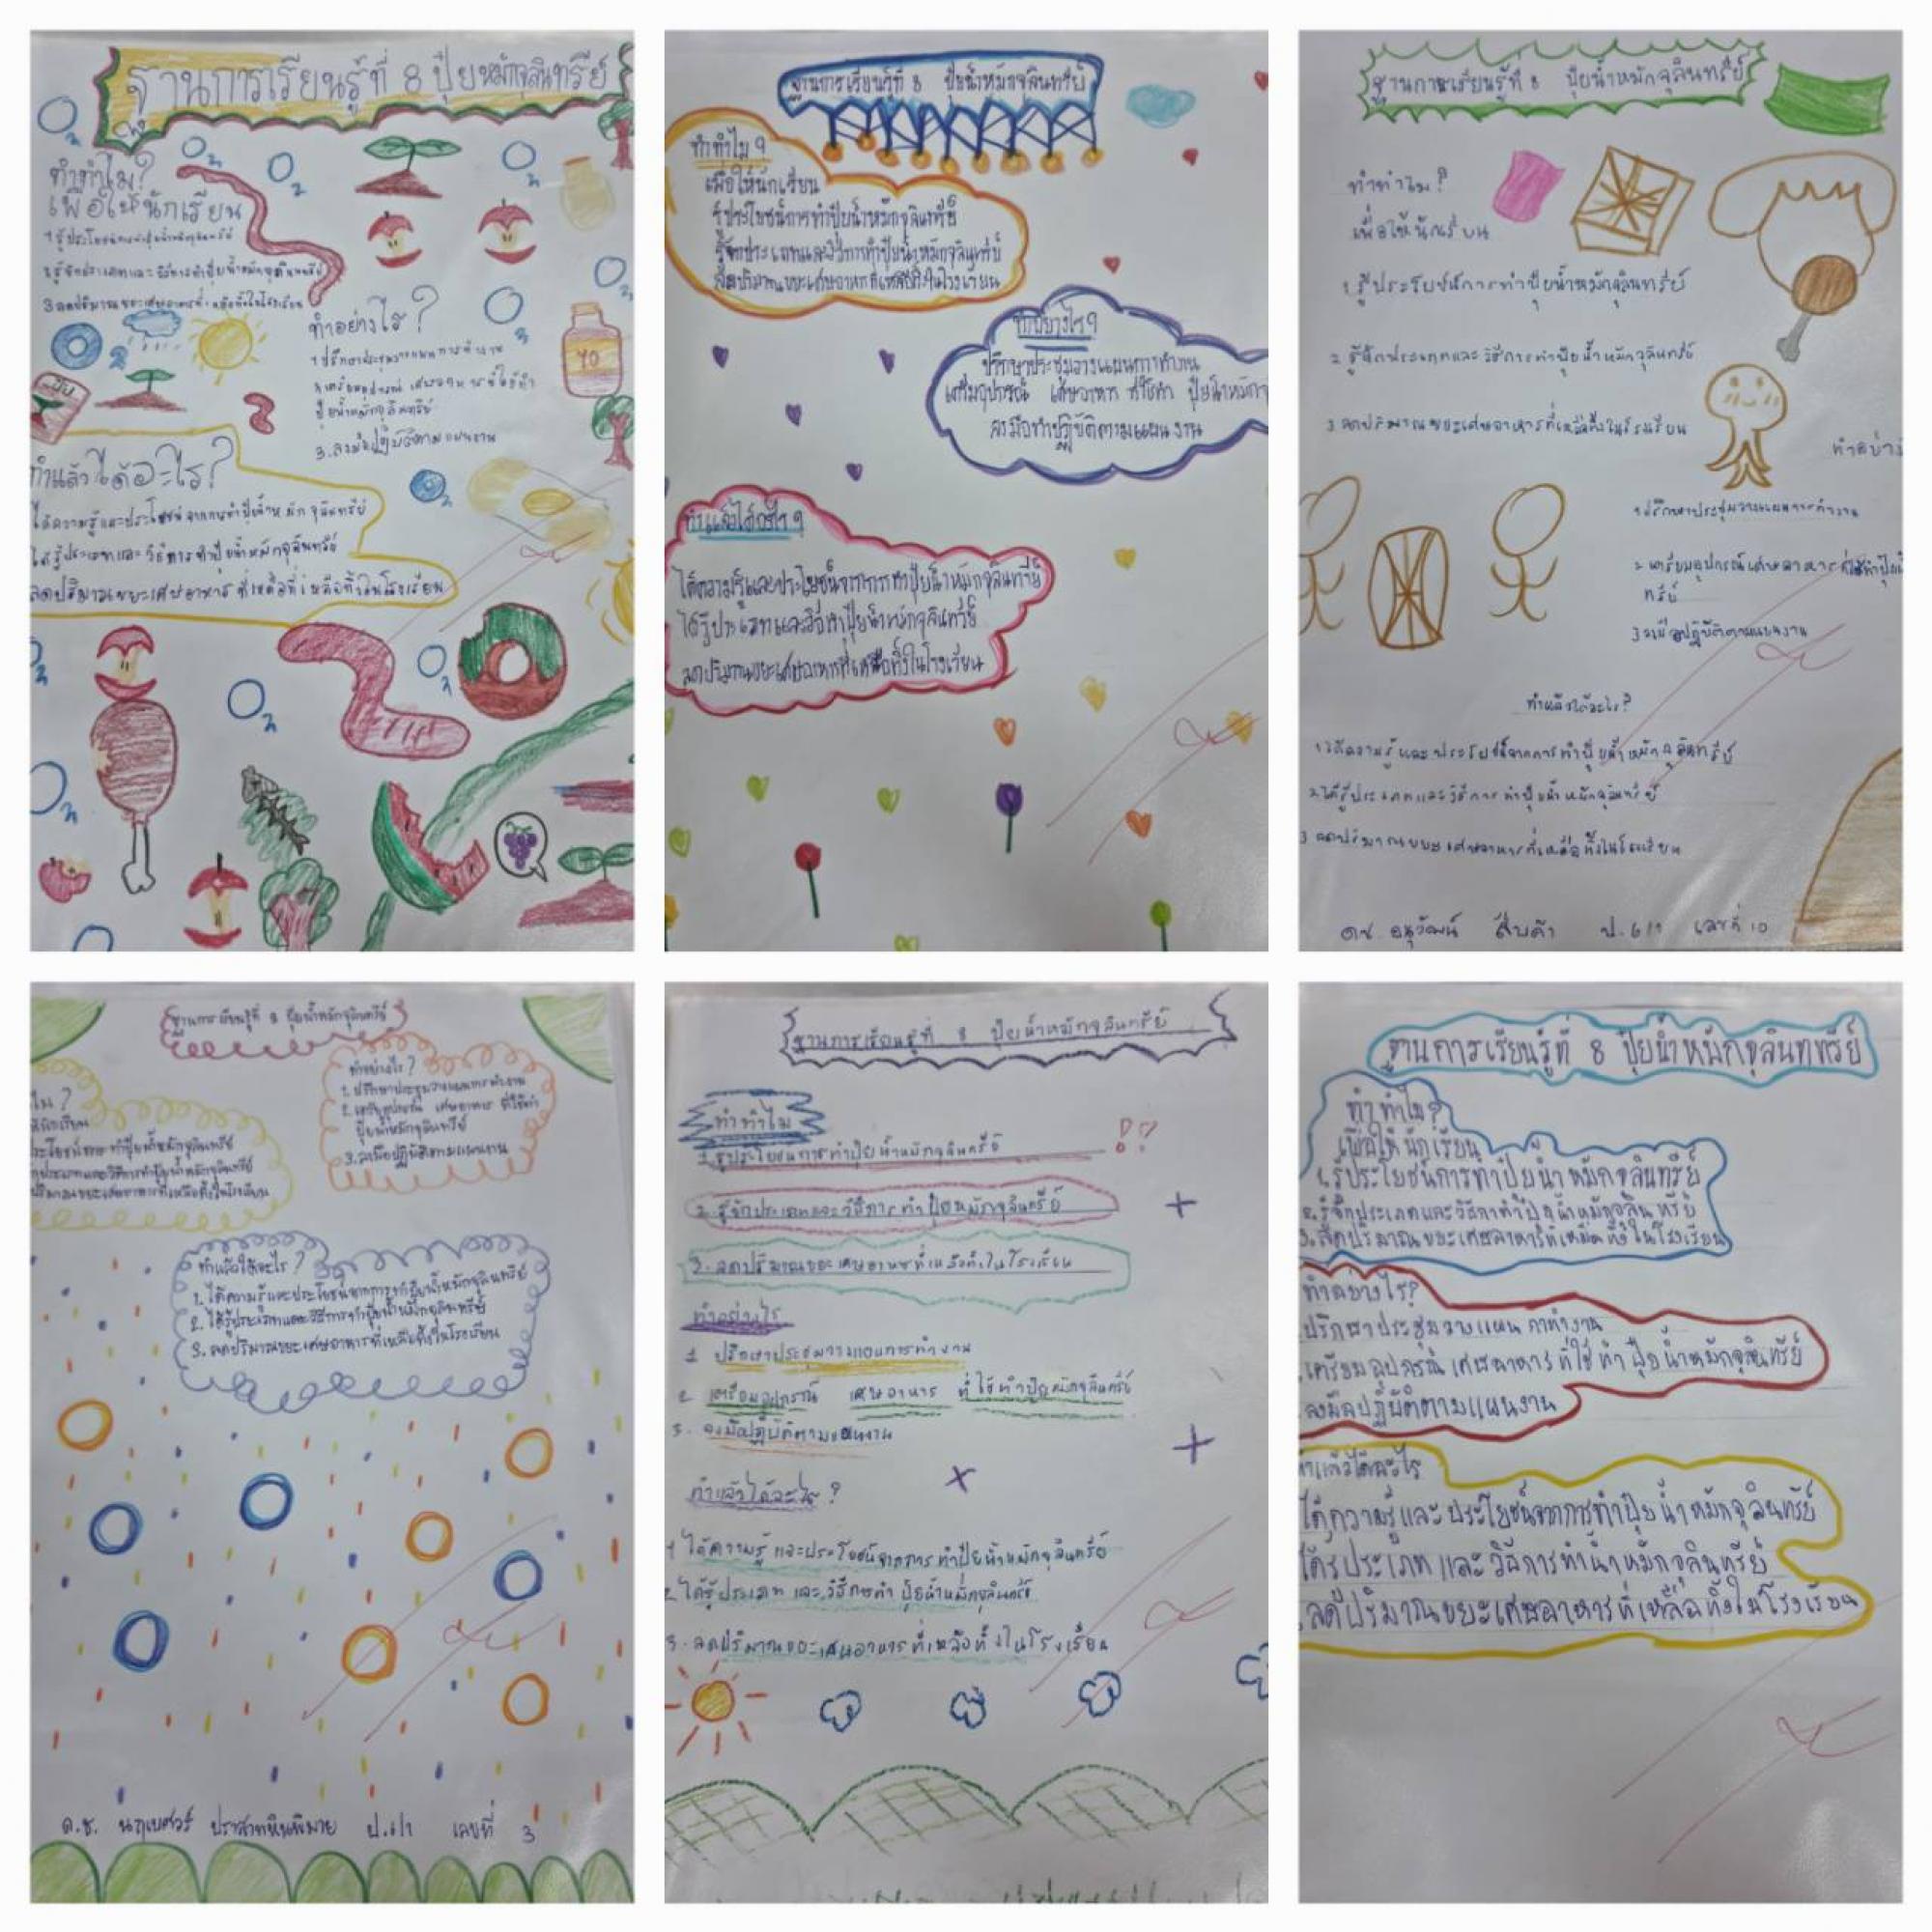 ฐานการเรียนรู้ที่ 8 ปุ๋ยหมักจุลินทรีย์
O2
ทำทำไม?
เพื่อให้นักเรียน
1 รู้ประโยชน์การทำปุ๋ยน้ำหมักจุลินทรีย์
2 รู้จักประเภทและวิธีการทำปุ๋ยน้ำหมักจุลินทรีย์
3 ลดปริมาณขยะเศษอาหารที่เหลือทิ้งในโรงเรียน
ทำอย่างไร?
1 ปรึกษาประชุมวางแผนการทำงาน
2 เตรียมอุปกรณ์ เศษอาหาร ที่ใช้ทำ
ปุ๋ยน้ำหมักจุลินทรีย์
3. ลงมือปฏิบัติตามแผนงาน
ปุ๋ย
ทำแล้วได้อะไร?
ได้ความรู้และประโยชน์จากการทำปุ๋ยน้ำหมักจุลินทรีย์
ได้รู้ประเภทและวิธีการทำปุ๋ยน้ำหมักจุลินทรีย์
ลดปริมาณขยะเศษอาหาร ที่เหลือที่เหลือทิ้งในโรงเรียน
ฐานการเรียนรู้ที่ 8 ปุ๋ยน้ำหมักจุลินทรีย์
ทำทำไม?
เพื่อให้นักเรียน
รู้ประโยชน์การทำปุ๋ยน้ำหมักจุลินทรีย์
รู้จักประเภทและวิธีการทำปุ๋ยน้ำหมักจุลินทรีย์
ลดปริมาณขยะเศษอาหารที่เหลือทิ้งในโรงเรียน
ทำอย่างไร?
ปรึกษาประชุมวางแผนการทำงาน
เตรียมอุปกรณ์ เศษอาหาร ที่ใช้ทำ ปุ๋ยน้ำหมักจุ
ลงมือทำปฏิบัติตามแผนงาน
ทำแล้วได้อะไร?
ได้ความรู้และประโยชน์จากการทำปุ๋ยน้ำหมักจุลินทรีย์
ได้รู้ประเภทและวิธีทำปุ๋ยน้ำหมักจุลินทรีย์
ลดปริมาณขยะเศษอาหารที่เหลือทิ้งในโรงเรียน
ฐานการเรียนรู้ที่ 8 ปุ๋ยน้ำหมักจุลินทรีย์
ทำทำไม?
เพื่อให้นักเรียน
1 รู้ประโยชน์การทำปุ๋ยน้ำหมักจุลินทรีย์
2 รู้จักประเภทและวิธีการทำปุ๋ยน้ำหมักจุลินทรีย์
3 ลดปริมาณขยะเศษอาหารที่เหลือทิ้งในโรงเรียน
ทำอย่าง
1 ปรึกษาประชุมวางแผนการทำงาน
2 เตรียมอุปกรณ์ เศษอาหาร ที่ใช้ทำปุ๋ย
ทรีย์
3 ลงมือปฏิบัติตามแผนงาน
ทำแล้วได้อะไร?
1 ได้ความรู้และประโยชน์จากการทำปุ๋ยน้ำหมักจุลินทรีย์
2 ได้รู้ประเภทและวิธีการทำปุ๋ยน้ำหมักจุลินทรีย์
3 ลดปริมาณขยะเศษอาหารที่เหลือทิ้งในโรงเรียน
ดช. อนุวัฒน์ ป.6/1 เลขที่ 10
ฐานการเรียนรู้ที่ 8 ปุ๋ยน้ำหมักจุลินทรีย์
ไม?
ให้นักเรียน
ประโยชน์การทำปุ๋ยน้ำหมักจุลินทรีย์
ประเภทและวิธีการทำปุ๋ยน้ำหมักจุลินทรีย์
ปริมาณขยะเศษอาหารที่เหลือทิ้งในโรงเรียน
ทำอย่างไร?
1. ปรึกษาประชุมวางแผนการทำงาน
2. เตรียมอุปกรณ์ เศษอาหาร ที่ใช้ทำ
ปุ๋ยน้ำหมักจุลินทรีย์
3. ลงมือปฏิบัติตามแผนงาน
ทำแล้วได้อะไร?
1. ได้ความรู้และประโยชน์จากการทำปุ๋ยน้ำหมักจุลินทรีย์
2. ได้รู้ประเภทและวิธีการทำปุ๋ยน้ำหมักจุลินทรีย์
3. ลดปริมาณขยะเศษอาหารที่เหลือทิ้งในโรงเรียน
ด.ช. นฤเบศวร์ ปราสาทหินพิมาย ป.6/1 เลขที่ 3
ฐานการเรียนรู้ที่ 8 ปุ๋ยน้ำหมักจุลินทรีย์
ทำทำไม
1. รู้ประโยชน์การทำปุ๋ยน้ำหมักจุลินทรีย์
2. รู้จักประเภทและวิธีการทำปุ๋ยหมักจุลินทรีย์
3. ลดปริมาณขยะเศษอาหารที่เหลือทิ้งในโรงเรียน
ทำอย่างไร
1 ปรึกษาประชุมวางแผนการทำงาน
2 เตรียมอุปกรณ์ เศษอาหาร ที่ใช้ทำปุ๋ยหมักจุลินทรีย์
3. ลงมือปฏิบัติตามแผนงาน
ทำแล้วได้อะไร?
1 ได้ความรู้และประโยชน์จากการทำปุ๋ยน้ำหมักจุลินทรีย์
2 ได้รู้ประเภทและวิธีการทำปุ๋ยน้ำหมักจุลินทรีย์
3. ลดปริมาณขยะเศษอาหารที่เหลือทิ้งในโรงเรียน
ฐานการเรียนรู้ที่ 8 ปุ๋ยน้ำหมักจุลินททรีย์
ทำทำไม?
เพื่อให้นักเรียน
1.รู้ประโยชน์การทำปุ๋ยน้ำหมักจุลินทรีย์
2.รู้จักประเภทและวิธีการทำปุ๋ยน้ำหมักจุลินทรีย์
3.ลดปริมาณขยะเศษอาหารที่เหลือทิ้งในโรงเรียน
ทำอย่างไร?
ปรึกษาประชุมวางแผนการทำงาน
เตรียมอุปกรณ์ เศษอาหารที่ใช้ทำปุ๋ยน้ำหมักจุลินทรีย์
ลงมือปฏิบัติตามแผนงาน
ทำแล้วได้อะไร
ได้ความรู้และประโยชน์จากการทำปุ๋ยน้ำหมักจุลินทรีย์
ได้รู้ประเภทและวิธีการทำน้ำหมักจุลินทรีย์
ลดปริมาณขยะเศษอาหารที่เหลือทิ้งในโรงเรียน